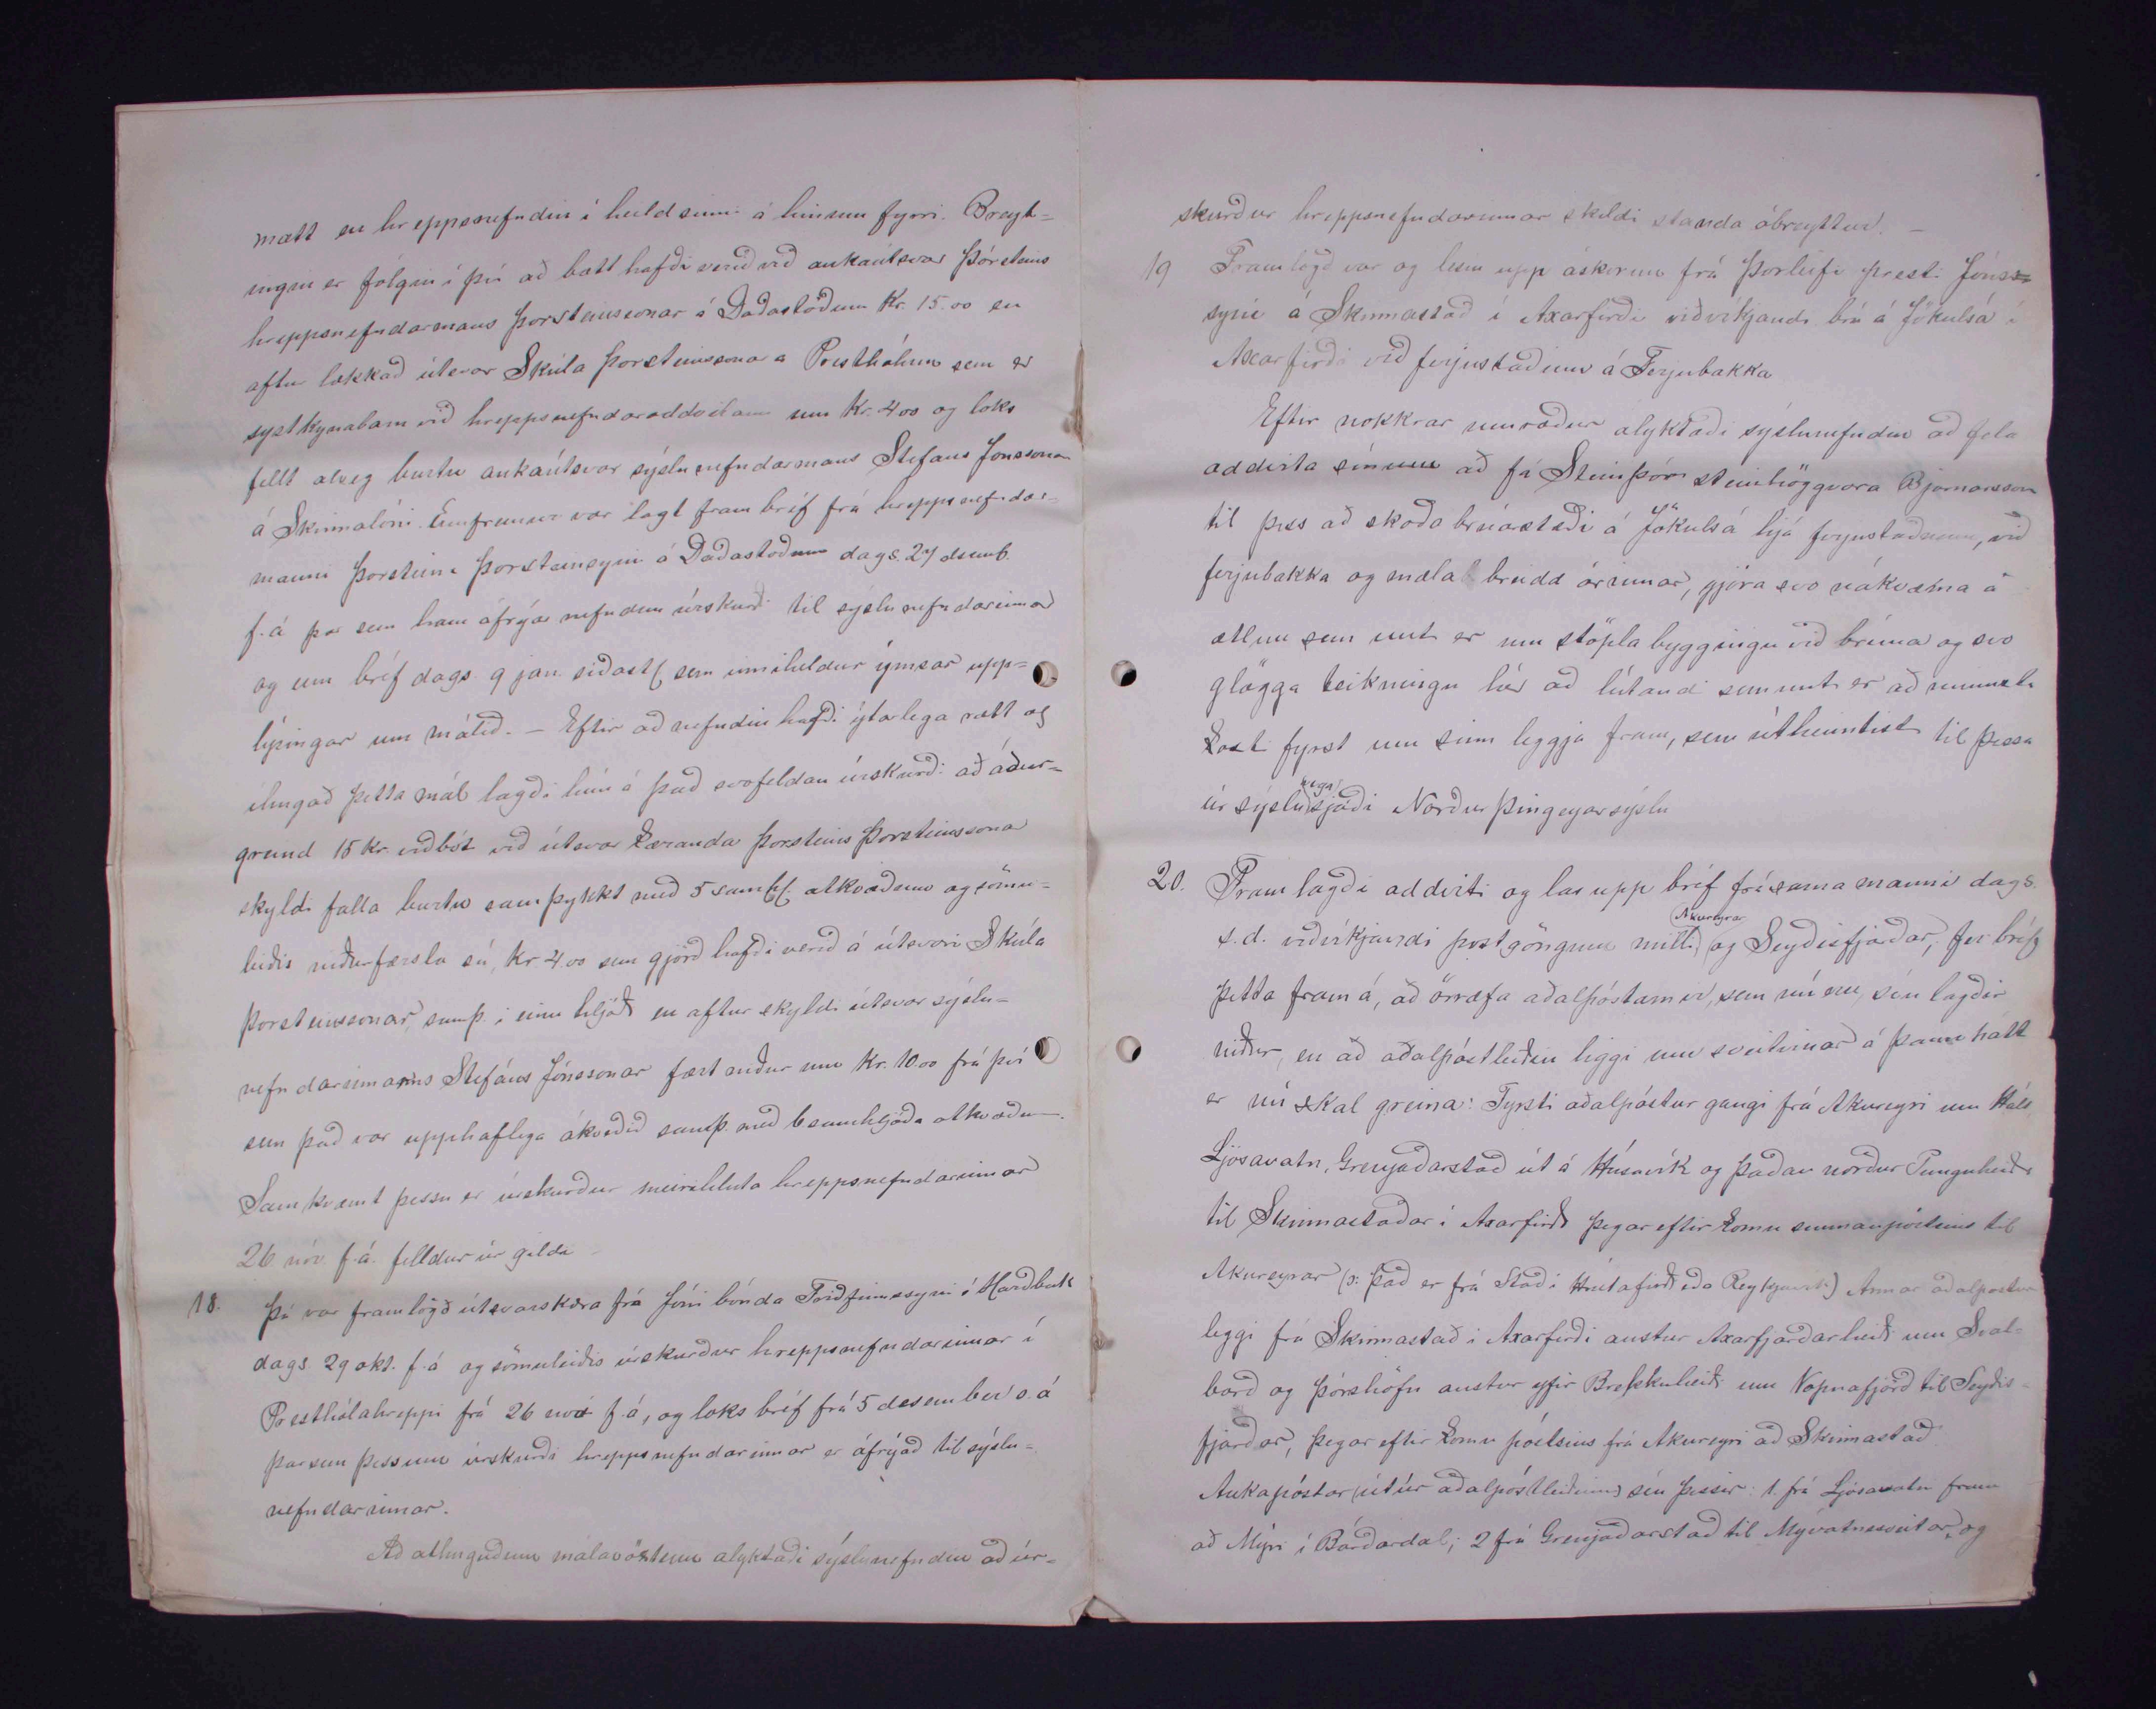 mætt en hreppsnefndin í heild sinni á hinum fyrri. Breyt=
ingin er fólgin í því að bætt hafði verið við aukaútsvar Þórsteins
hreppsnefndarmans Þorsteinssonar á Daðastöðum Kr. 15.00 en
aftur lækkað útsvar Skúla Þorsteinssonar á Presthólum sem er
systkynabarn við hreppsnefndaroddvitann um Kr. 4 00 og loks
fellt alveg burtu aukaútsvar sýslunefndarmans Stefans Jónssonar
á Skinnalóni. Ennfremur var lagt fram bréf frá hreppsnefndar=
manni Þorsteini Þorsteinsyni á Daðastöðum dags. 27 desemb.
f. á þar sem hann áfrýar nefndum úrskurði til sýslunefndarinnar
og enn bréf dags. 9 jan. síðastl. sem inniheldur ýmsar upp=
lýsingar um málið. — Eftir að nefndin hafði ýtarlega rætt og
íhugað þetta mál lagði hún á það svofeldan úrskurð: að áður=
greind 15 kr. viðbót við útsvar kæranda Þorsteins Þorsteinssonar
skyldi falla burtu samþykkt með 5 samhl. atkvæðum og sömu=
leiðis niðurfærsla sú, Kr 4.00 sem gjörð hafði verið á útsvari Skúla
Þorsteinssonar, samþ. í einu hljóði en aftur skyldi útsvar sýslu=
nefndarmanns Stefáns Jónssonar fært niður um Kr. 10.00 frá því
sem það var upphaflega ákveðið samþ. með 6 samhljóða atkvæðum.
Samkvæmt þessu er úrskurður meirihluta hreppsnefndarinnar
26 nóv. f. á. felldur úr gildi
18. Þá var framlögð útsvarskæra frá Jóni bónda Þórðfinnssyni í Harðbak
dags. 29 okt. f. á og sömuleiðis úrskurður hreppsnefndarinnar í
Presthólahreppi frá 26 nóv f. á, og loks bréf frá 5 desember s. á
þar sem þessum úrskurði hreppsnefndarinnar er áfrýað til sýslu=
nefndarinnar.
Að athuguðum málavöxtum ályktaði sýslunefndin að úr=
skurður hreppsnefndarinnar skildi standa óbreyttur. —
19 Framlögð var og lesin upp áskorun frá Þorleifi presti Jóns=
syni á Skinnastað í Axarfirði viðvíkjandi brú á Jökulsá í
Axarfirði við ferjustaðinn á Ferjubakka
Eftir nokkrar umræður ályktaði sýslunefndin að fela
oddvita sínum að fá Steinþór steinhöggvara Bjarnarsson
til þess að skoða brúarstæði á Jökulsá hjá ferjustaðnum, við
ferjubakka og mæla breidd árinnar, gjöra svo nákvæma á
ætlun sem unt er um stöpla byggingu við brúna og svo
glögga teikningu hér að lútandi sem unt er að minnsta
kosti fyrst um sinn leggja fram, sem útheimtist til þessa
úr sýslu vega sjóði Norður Þingeyarsýslu
20. Fram lagði oddviti og las upp bréf frá sama manni dags.
s. d. viðvíkjandi póstgöngum milli Akureyrar og Seyðisfjarðar, fer bréf
þetta fram á, að öræfa aðalpóstarnir, sem nú eru, séu lagðir
niður, en að aðalpóstleiðin liggi um sveitirnar á þann hátt
er nú skal greina: Fyrsti aðalpóstur gangi frá Akureyri um Háls,
Ljósavatn, Grenjaðarstað út á Húsavík og þaðan norður Tunguheiði
til Skinnastaðar í Axarfirði þegar eftir komu sunnanpóstsins til
Akureyrar (ɔ: það er frá Stað í Hrútafirði eða Reykjavík) Annar aðalpóstur
leggi frá Skinnastað í Axarfirði austur Axarfjarðarheiði um Sval=
barð og Þórshöfn austur yfir Brekknaheiði um Vopnafjörð til Seyðis=
fjarðar, þegar eftir komu póstsins frá Akureyri að Skinnastað.
Aukapóstar (út úr aðalpóstleiðinni) séu þessir: 1. frá Ljósavatni fram
að Mýri í Bárðardal; 2 frá Grenjaðarstað til Mývatnssveitar, og